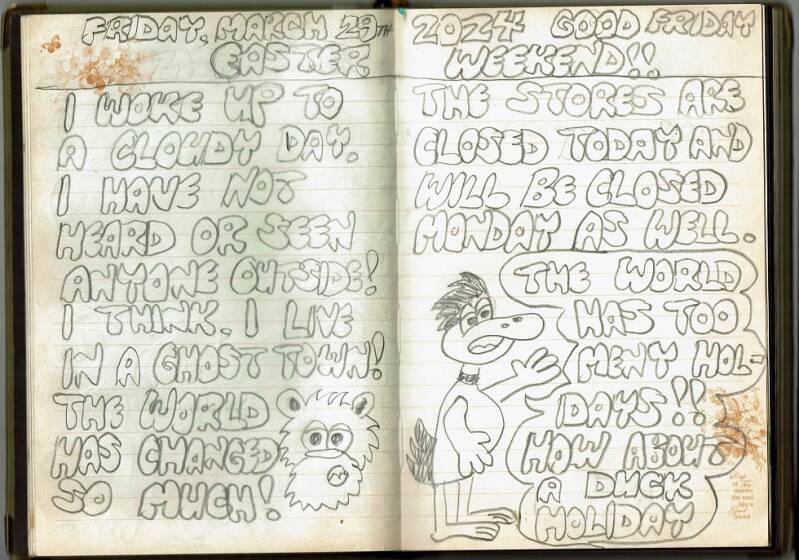 FRIDAY, MARCH 29TH
EASTER
I WOKE UP TO
A CLOUDY DAY.
I HAVE NOT
HEARD OR SEEN
ANYONE OUTSIDE!
I THINK. I LIVE
IN A GHOST TOWN!
THE WORLD
HAS CHANGED
SO MUCH!
2024 GOOD FRIDAY
WEEKEND!!
THE STORES ARE
CLOSED TODAY AND
WILL BE CLOSED
MONDAY AS WELL.
THE WORLD
HAS TOO
MENY HOL-
DAYS!!
HOW ABOUT
A DUCK
HOLIDAY
Cup
of Tea
warms
the soul
like a
Good
friend